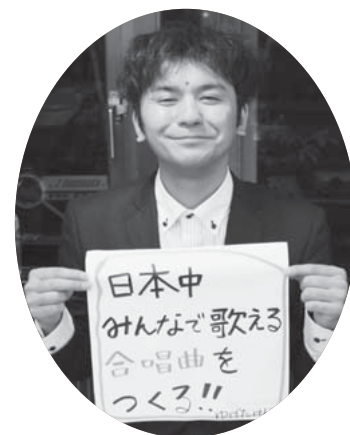 日本中
みんなで歌える
合唱曲を
つくる!!